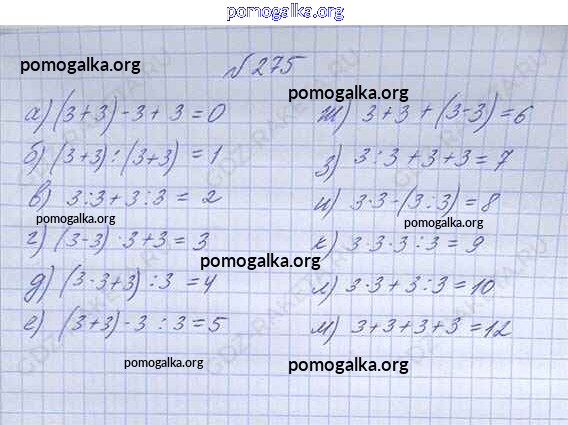 pomogalka.org
№275
pomogalka.org
pomogalka.org
а) (3+3)-3+3=0
б) (3+3):(3+3)=1
в) 3:3+3:3=2
pomogalka.org
г) (3-3)·3+3=3
pomogalka.org
д) (3·3+3):3=4
е) (3+3)-3:3=5
pomogalka.org
ж) 3+3+(3-3)=6
з) 3:3+3+3=7
и) 3·3-(3:3)=8
pomogalka.org
к) 3·3·3:3=9
л) 3·3+3:3=10
м) 3+3+3+3=12
pomogalka.org
GDZ-RAKETA.RU